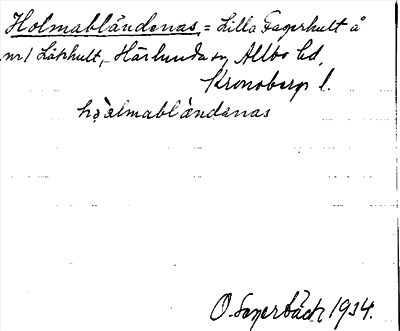 Holmabländenas = Lilla Fagerhult å
nr 1 Läshult, Härlunda sn, Allbo hd,
Kronobergs l.
hò̤lmablàndenas
O. 1934.